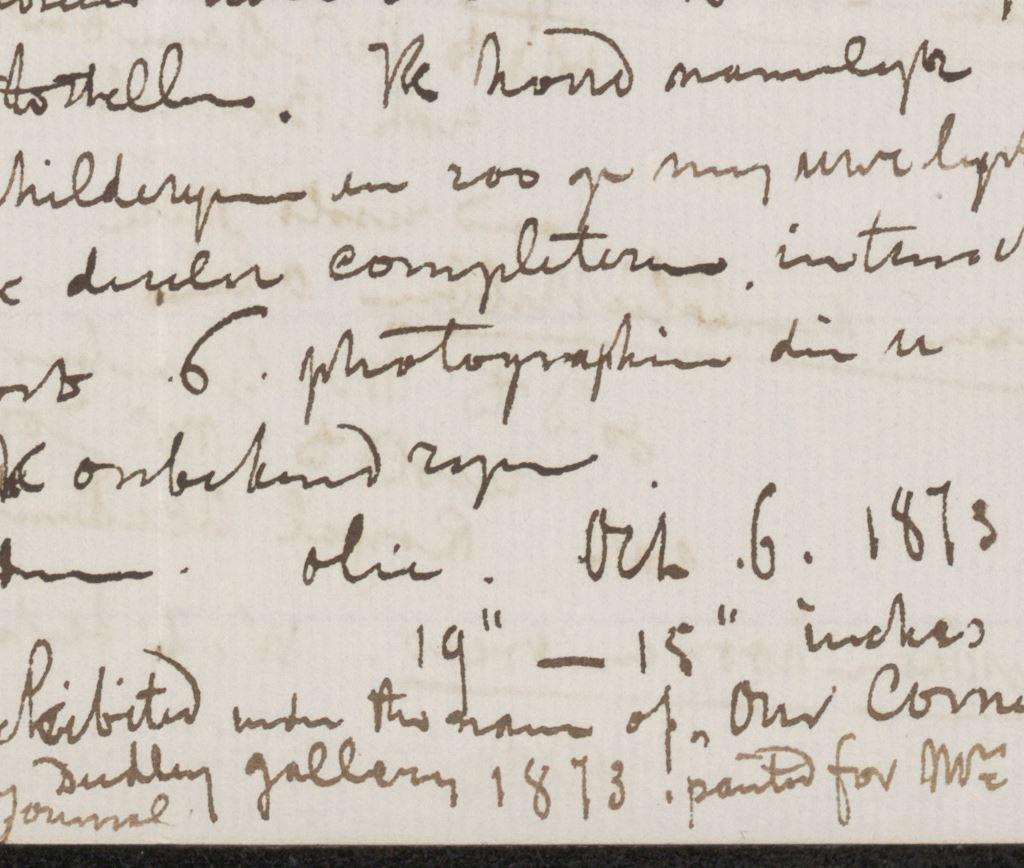 te stellen. Ik houd namelijk
schilderijen en zoo ge mij uwe lijst
deeler completeren.
6 photographien die u
onbekend zijn
olie. Oct. 6. 1873
19" — 15" inches
Exhibited under the name of „Our Corne
Dudley gallery 1873. painted for Mrs
journal